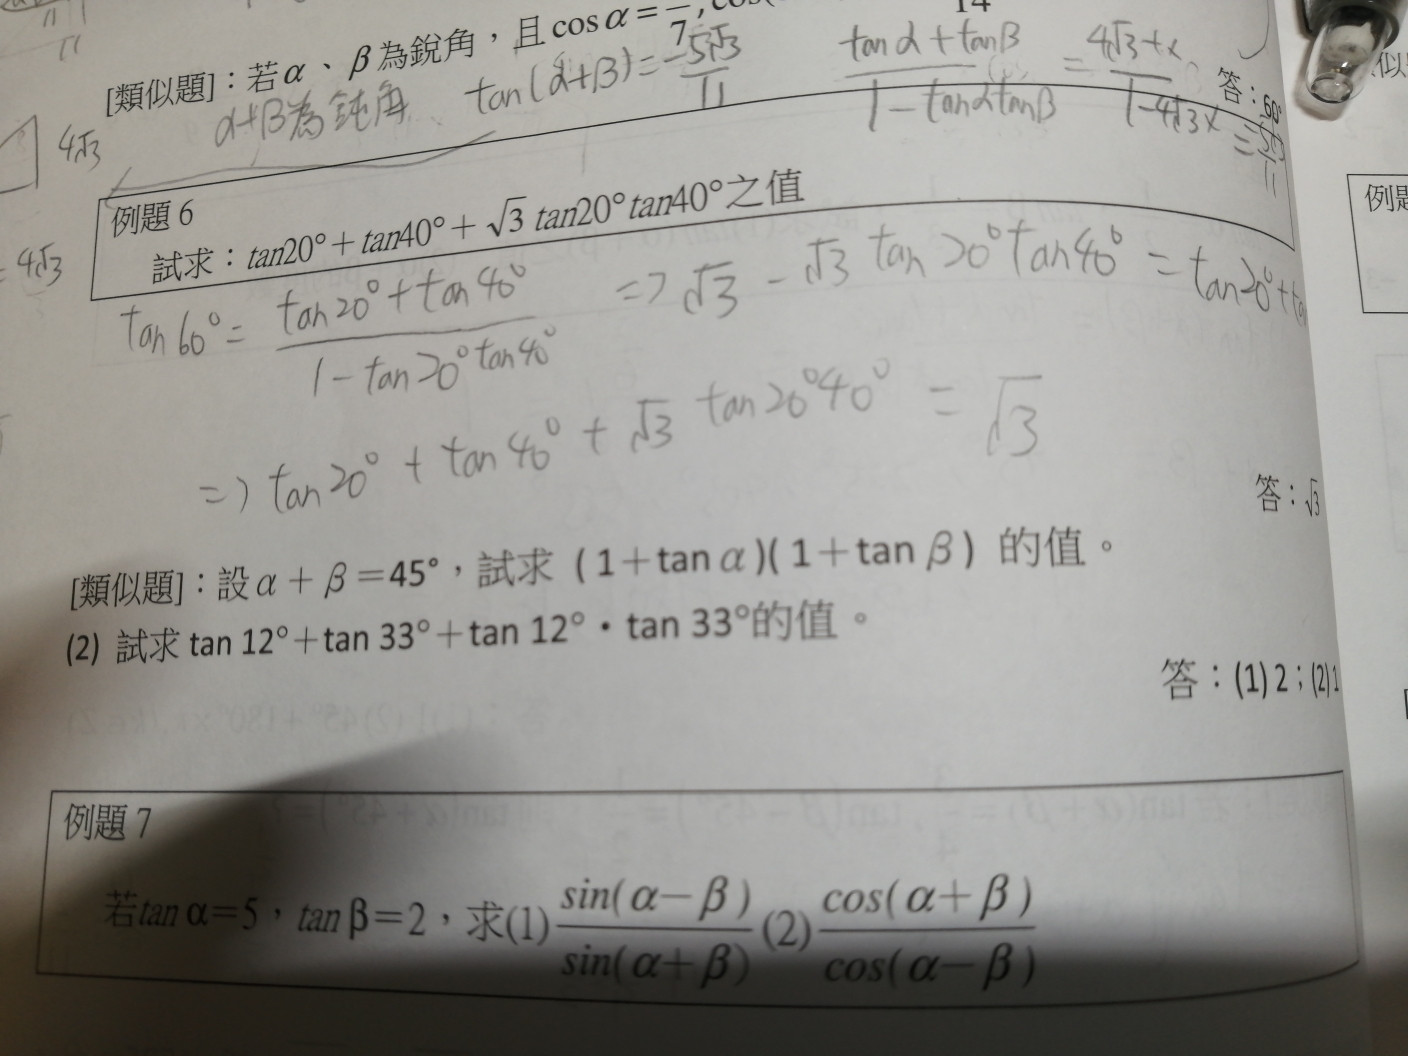 [類似題]：若α、β為銳角，且cosα=
7
14
α+β為鈍角
tan(α+β)=-5√3/11
(tanα+tanβ)/(1-tanαtanβ) = (4√3+x)/(1-4√3x)
答：60°
4√3
4√3
例題 6
試求：tan20°+tan40°+√3 tan20°tan40°之值
tan60°=(tan20°+tan40°)/(1-tan20°tan40°) => √3-√3 tan20°tan40°=tan20°+
=> tan20°+tan40°+√3 tan20°40°=√3
答：√3
[類似題]：設α+β=45°，試求 (1+tanα)(1+tanβ) 的值。
(2) 試求 tan 12°+tan 33°+tan 12°·tan 33°的值。
答：(1) 2；(2) 1
例題 7
若tan α=5，tan β=2，求(1) sin(α-β)/sin(α+β) (2) cos(α+β)/cos(α-β)